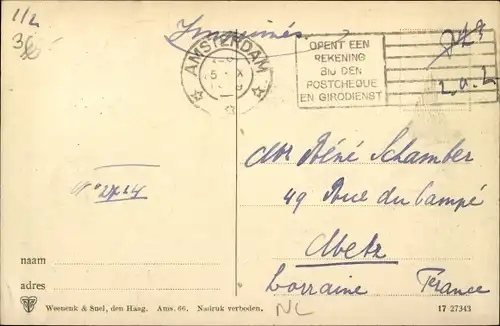 1/2
Imprimés
AMSTERDAM
OPENT EEN
REKENING
BIJ DEN
POSTCHEQUE
EN GIRODIENST
2.0.2
Mr Réné Schamber
49 Rue du Campé
Metz
Lorraine France
No 2724
naam
adres
Weenenk & Snel, den Haag. Ams. 66. Nadruk verboden.
NL
17 27343